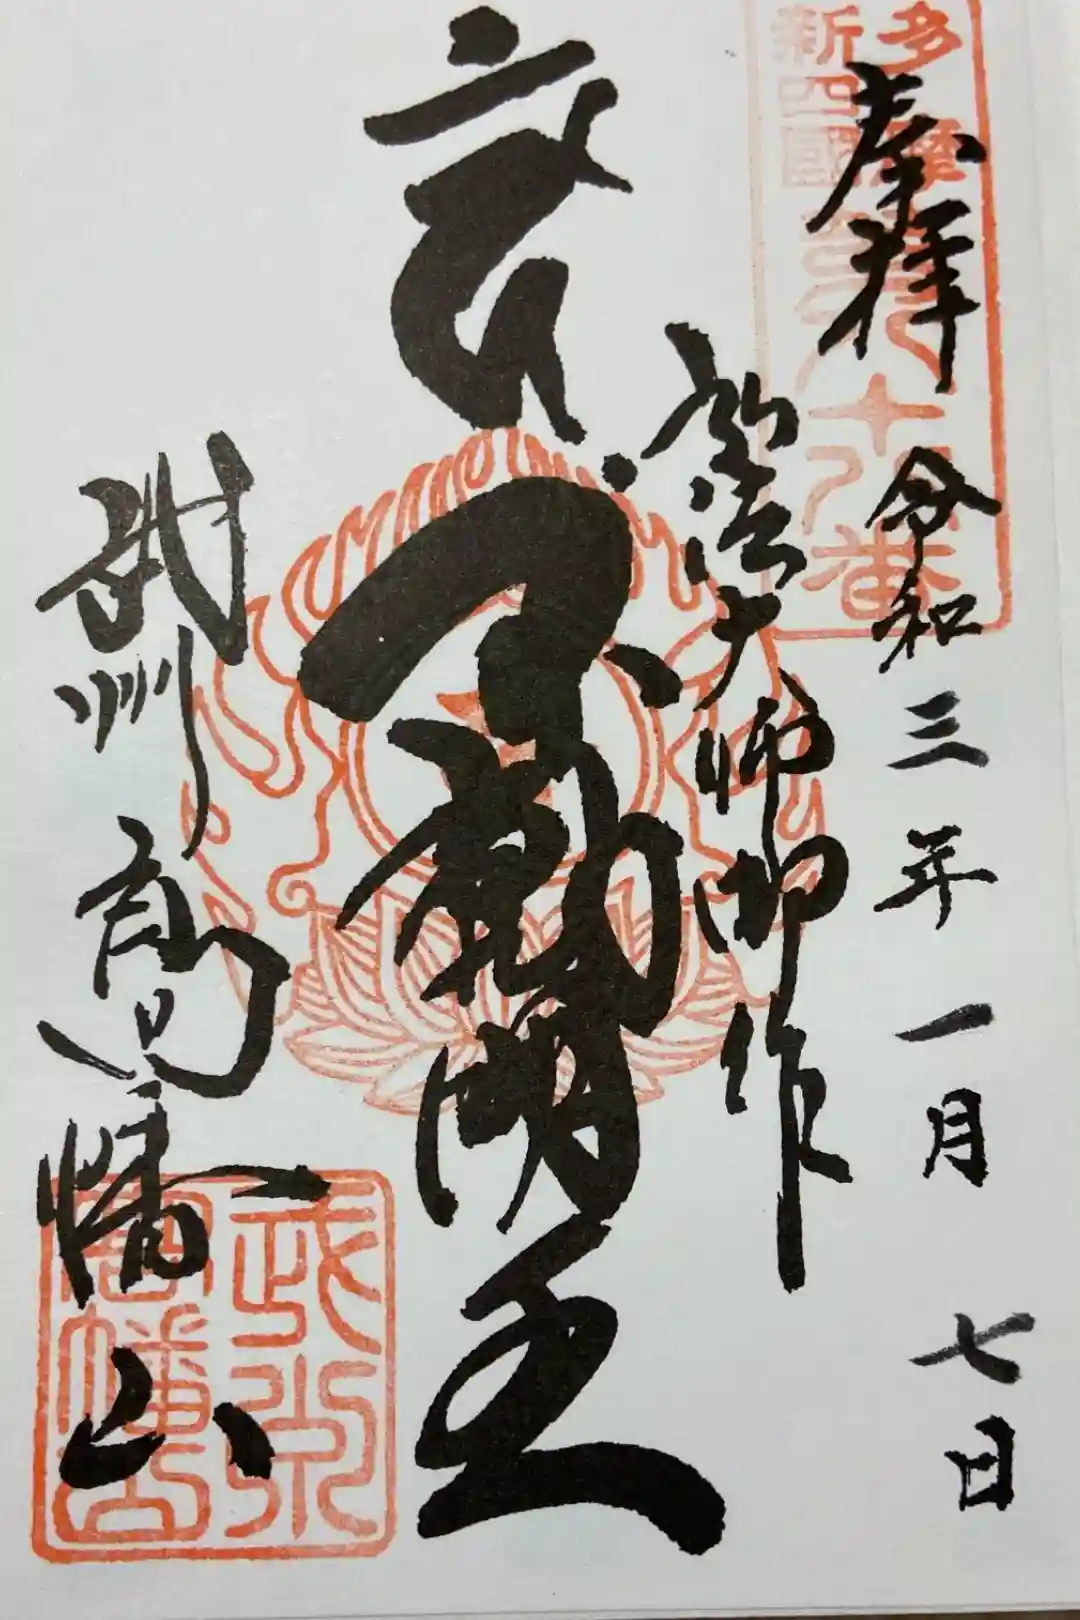 多摩
新四國
第八十八番
奉拝 令和三年一月七日
弘法大師御作
不動明王
武州高幡山
武州
高幡山